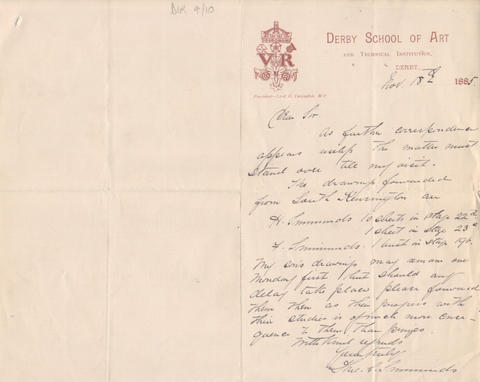 DIR 9/10
DERBY SCHOOL OF ART
AND TECHNICAL INSTITUTION,
DERBY,
VR
Nov. 18th 1885.
President—Lord E. Cavendish, M.P.
Dear Sir
As further correspondence
appears useless the matter must
stand over till my visit.
The drawings forwarded
from South Kensington are
H. Simmonds 10 sheets in stage 22d
1 sheet in stage 23c
F. Simmonds. 1 bust in stage 19b.
My son's drawings may remain
Monday first but should any
delay take place please forward
them then as their progress with
their studies is of much more conse-
quence to them than
Without refunds
Yours truly
Simmonds